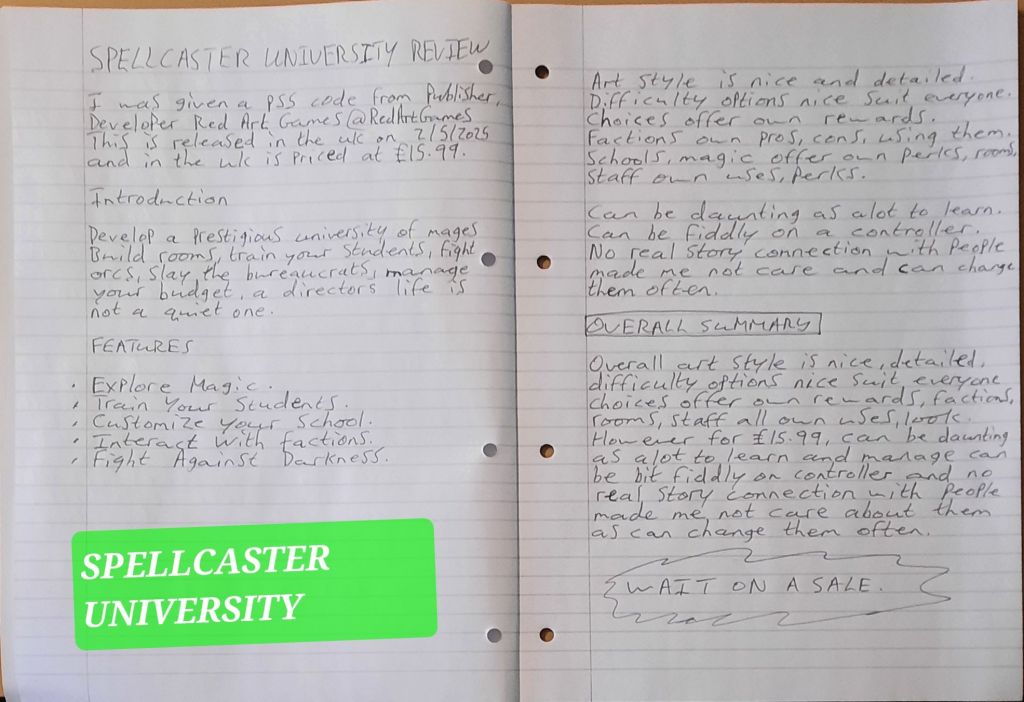 SPELLCASTER UNIVERSITY REVIEW
I was given a PS5 code from Publisher,
Developer Red Art Games @RedArtGames
This is released in the uk on 2/5/2025
and in the uk is Priced at £15.99.
Introduction
Develop a Prestigious university of mages
Build rooms, train your students, fight
orcs, slay the bureaucrats, manage
your budget, a directors life is
not a quiet one.
FEATURES
· Explore Magic.
· Train Your Students.
· Customize your School.
· Interact With factions.
· Fight Against Darkness.
SPELLCASTER
UNIVERSITY
Art Style is nice and detailed.
Difficulty options nice suit everyone.
Choices offer own rewards.
Factions own pros, cons, using them.
Schools, magic offer own Perks, rooms,
Staff own uses, Perks.
Can be daunting as alot to learn.
Can be fiddly on a controller.
No real Story connection with People
made me not care and can change
them often.
OVERALL SUMMARY
Overall art Style is nice, detailed,
difficulty options nice suit everyone
choices offer own rewards, factions,
rooms, staff all own uses, look.
However for £15.99, can be daunting
as alot to learn and manage can
be bit fiddly on controller and no
real Story connection with People
made me not care about them
as can change them often.
WAIT ON A SALE.